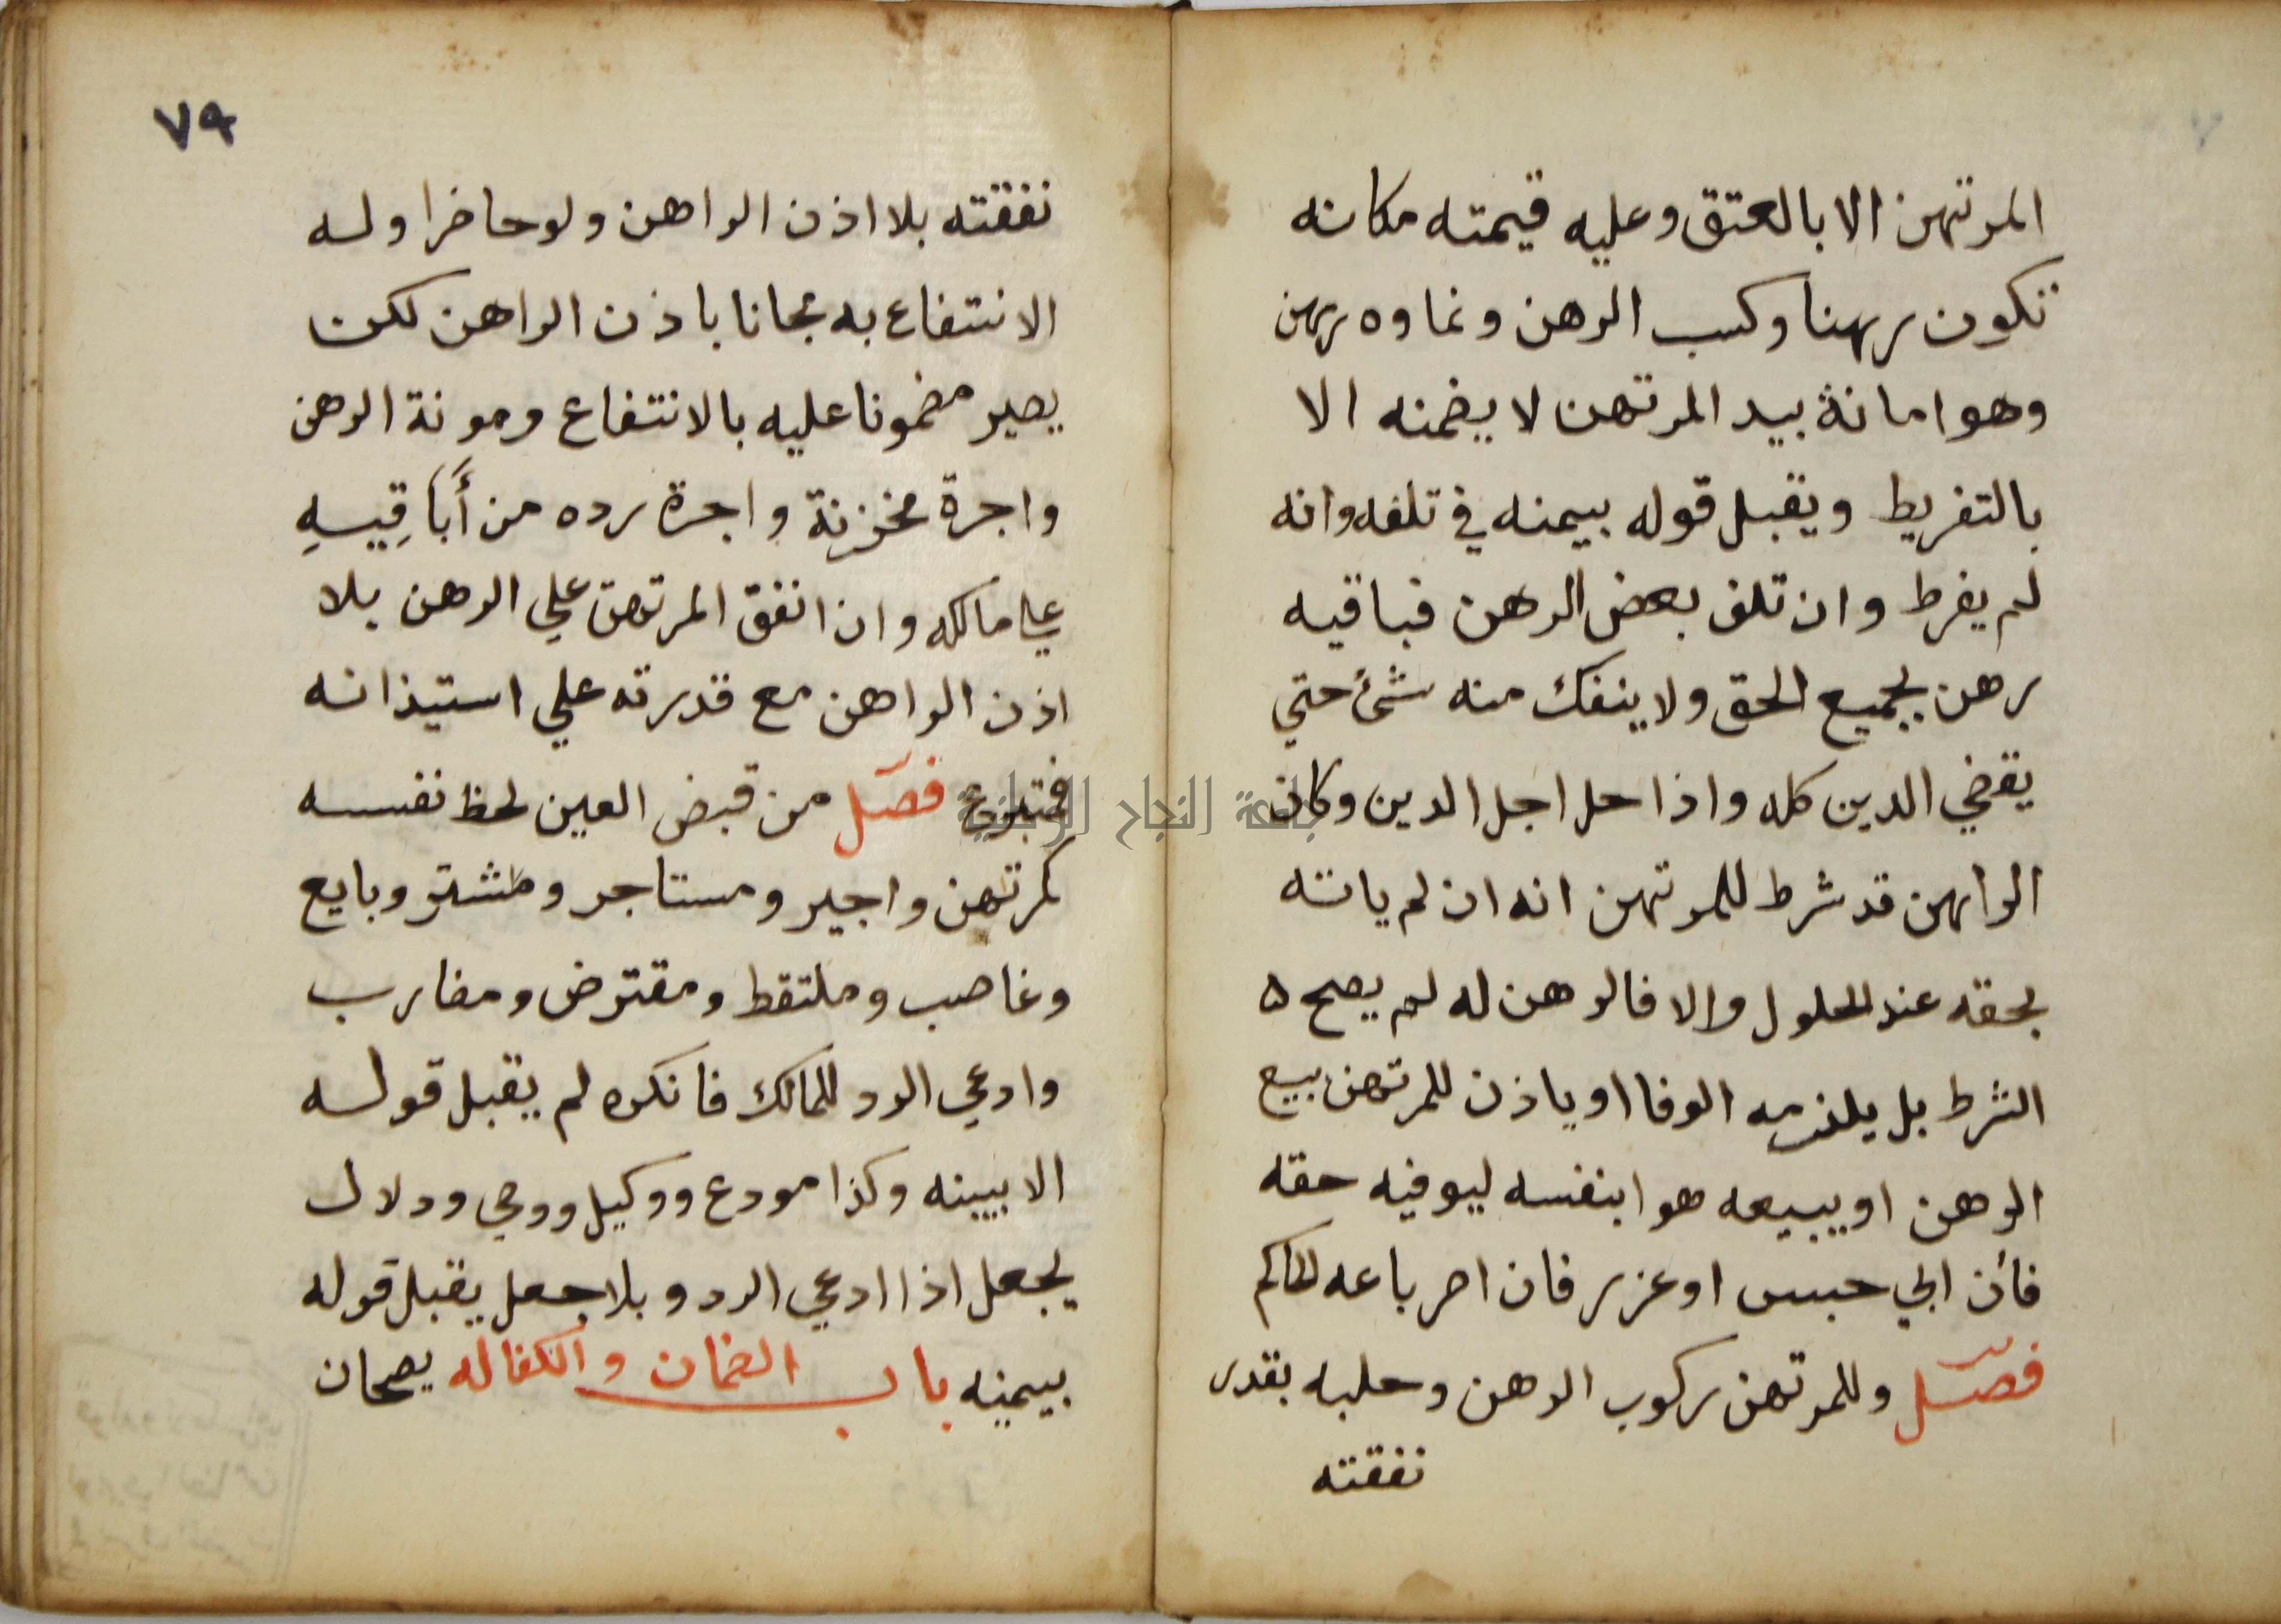 المرتهن الا بالعتق وعليه قيمته مكانه
تكون رهنا وكسب الرهن ونماوه رهن
وهو امانة بيد المرتهن لا يضمنه الا
بالتفريط ويقبل قوله بيمنه في تلفه وانه
لم يفرط وان تلف بعض الرهن فباقيه
رهن بجميع الحق ولا ينفك منه شئ حتي
يقضي الدين كله واذا حل اجل الدين وكان
الراهن قد شرط للمرتهن انه ان لم ياته
بحقه عند الحلول والا فالرهن له لم يصح
الشرط بل يلزمه الوفا او ياذن للمرتهن بيع
الرهن او يبيعه هو ا بنفسه ليوفيه حقه
فأن ابي حبس او عزر فان اصر باعه الحاكم
فصل وللمرتهن ركوب الرهن وحلبه بقدر
نفقته
٧٩
نفقته بلا اذن الراهن ولو حاضرا وله
الانتفاع به مجانا باذن الراهن لكن
يصير مضمونا عليه بالانتفاع ومونة الرهن
واجرة مخزنة واجرة رده من أَبَاقِيهِ
علي مالكه وان انفق المرتهن علي الرهن بلا
اذن الراهن مع قدرته علي استيذانه
فمتبرع فصل من قبض العين لحظ نفسه
كمرتهن واجير ومستاجر ومشتر وبايع
وغاصب وملتقط ومقترض ومضارب
وادعي الرد للمالك فانكره لم يقبل قوله
الا ببينه وكذا مودع ووكيل ووصي ودلال
بجعل اذا ادعي الرد وبلا جعل يقبل قوله
بيمينه باب الضمان والكفاله يصحان
جامعة النجاح الوطنية